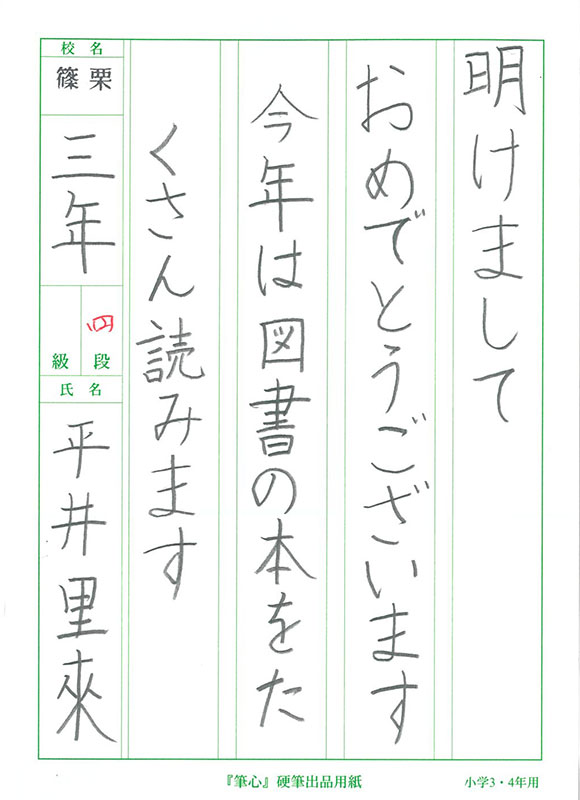 明けまして
おめでとうございます
今年は図書の本をた
くさん読みます
校名
篠栗
三年
四
段
級
氏名
平井里來
『筆心』硬筆出品用紙
小学3・4年用